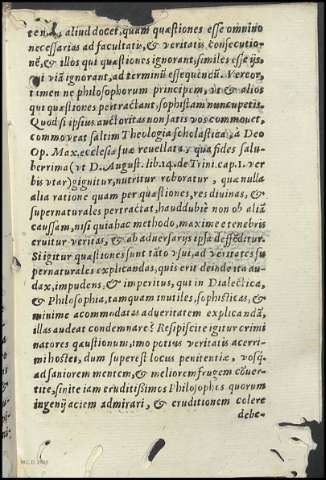 aliud docet, quam quæstiones esse omnino
necessarias ad facultatis, & veritatis consecutio-
nē, & illos qui quæstiones ignorant, similes esse ijs,
qui viā ignorant, ad terminū esse quēcū. Vereor,
timen ne philosophorum principem, vt & alios
qui quæstiones pertractant, sophistam nuncupetis.
Quod si ipsius auctoritas non satis vos commouet,
commoveat saltim Theologia scholastica, à Deo
Op. Max. ecclesiæ suæ reuelata, qua fides salu-
berrima (vt D. August. lib. 14. de Trini. cap. 1. ver
bis vtar) gignitur, nutritur roboratur, quæ nulla
alia ratione quam per quæstiones, res diuinas, &
supernaturales pertractat, haud dubiè non ob aliā
caussam, nisi quia hac methodo, maxime e tenebris
eruitur veritas, & ab aduersarijs ipsa deffēditur.
Si igitur quæstiones sunt tāto vsui, ad veritates su
pernaturales explicandas, quis erit deinde ita au-
dax, impudens, & imperitus, qui in Dialectica,
& Philosophia, tamquam inutiles, sophisticas, &
minime accommodatas ad veritatem explicandā,
illas audeat condemnare? Resipiscite igitur crimi
natores quæstionum, imo potius veritatis acerri-
mi hostes, dum superest locus penitentiæ, vosq.
ad saniorem mentem, & meliorem frugem cōuer-
tite, sinite iam eruditissimos Philosophos quorum
ingenij aciem admirari, & eruditionem colere
debe-